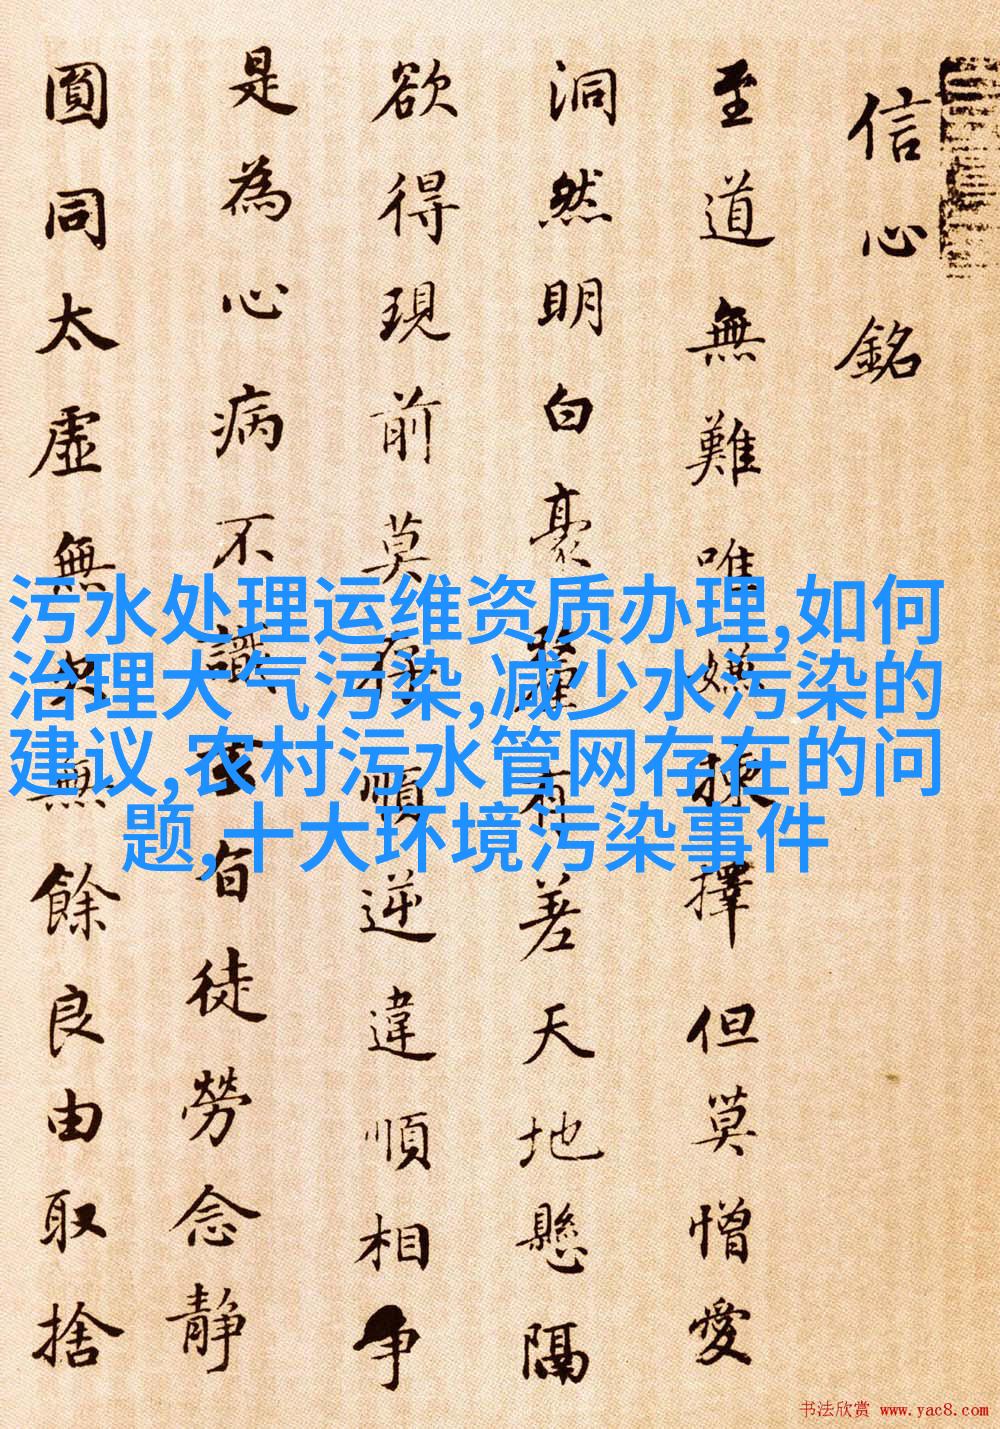 信心銘
至道無難唯嫌揀擇但莫憎愛
洞然明白豪釐有差天地懸隔
欲得現前莫存順逆違順相争
是為心病不識玄旨徒勞念静
圓同太虛無欠無餘良由取捨
污水处理运维资质办理,如何
治理大气污染,减少水污染的
建议,农村污水管网存在的问
题,十大环境污染事件
书法欣赏 www.yac8.com